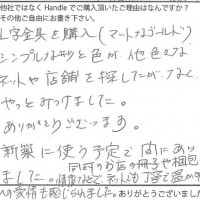 他社ではなく Handle でご購入頂いたご理由はなんですか？
その他ご自由にお書き下さい。
L字金具を購入（マートなゴールド）
シンプルな形と色が、他色々な
ネットや店舗を探したがなく、
やっとみつけました。
ありがとうございます。
新築に使う予定で間にあい
ました。
同封のお店の冊子や梱包
情報などで、ネットでも丁寧で温かみ
への愛情も感じられました。ありがとうございました